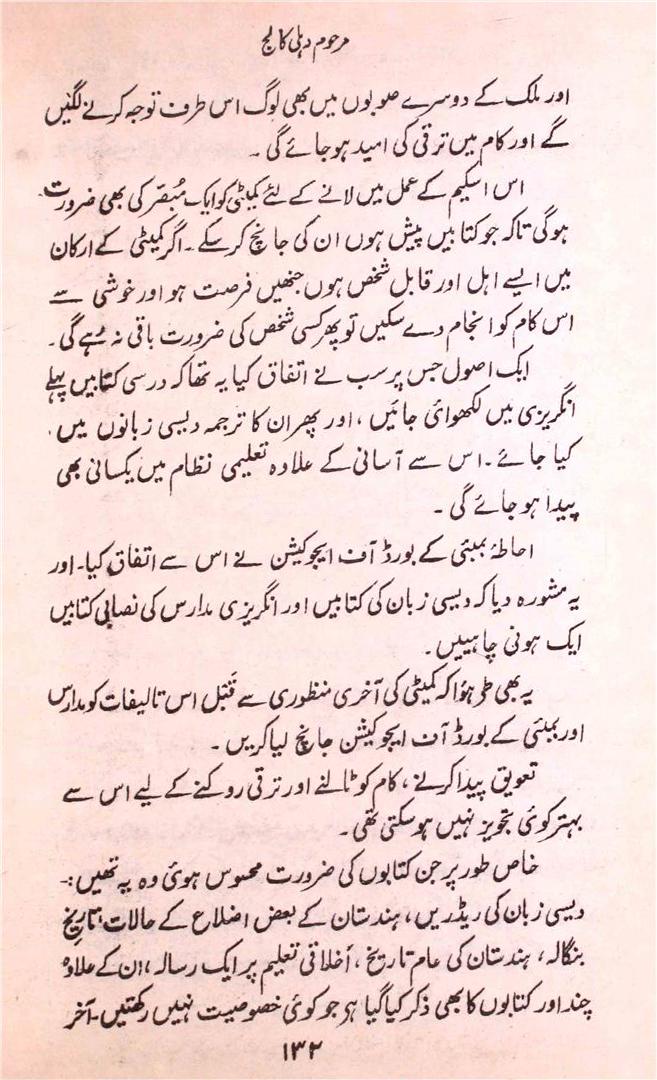 مرحوم دہلی کالج
اور ملک کے دوسرے صوبوں میں بھی لوگ اس طرف توجہ کرنے لگیں
گے اور کام میں ترقی کی امید ہو جائے گی ۔
اس اسکیم کے عمل میں لانے کے لئے کمیٹی کو ایک مُبصّر کی بھی ضرورت
ہوگی تاکہ جو کتابیں پیش ہوں ان کی جانچ کر سکے ۔ اگر کمیٹی کے ارکان
میں ایسے اہل اور قابل شخص ہوں جنھیں فرصت ہو اور خوشی سے
اس کام کو انجام دے سکیں تو پھر کسی شخص کی ضرورت باقی نہ رہے گی ۔
ایک اصول جس پر سب نے اتفاق کیا یہ تھا کہ درسی کتابیں پہلے
انگریزی میں لکھوائی جائیں ، اور پھر ان کا ترجمہ دیسی زبانوں میں
کیا جائے ۔ اس سے آسانی کے علاوہ تعلیمی نظام میں یکسانی بھی
پیدا ہو جائے گی ۔
احاطۂ بمبئی کے بورڈ آف ایجوکیشن نے اس سے اتفاق کیا ۔ اور
یہ مشورہ دیا کہ دیسی زبان کی کتابیں اور انگریزی مدارس کی نصابی کتابیں
ایک ہونی چاہییں ۔
یہ بھی طی ہؤا کہ کمیٹی کی آخری منظوری سے قَبل اس تالیفات کو مدارس
اور بمبئی کے بورڈ آف ایجوکیشن جانچ لیا کریں ۔
تعویق پیدا کرنے ، کام کو ٹالنے اور ترقی روکنے کے لیے اس سے
بہتر کوئی تجویز نہیں ہوسکتی تھی ۔
خاص طور پر جن کتابوں کی ضرورت محسوس ہوئی وہ یہ تھیں :۔
دیسی زبان کی ریڈریں ، ہندستان کے بعض اضلاع کے حالات ، تاریخِ
بنگالہ ، ہندستان کی عام تاریخ ، اَخلاقی تعلیم پر ایک رسالہ ، اِن کے علاوہ
چند اور کتابوں کا بھی ذکر کیا گیا ہر جو کوئی خصوصیت نہیں رکھتیں ۔ آخر
۱۳۲